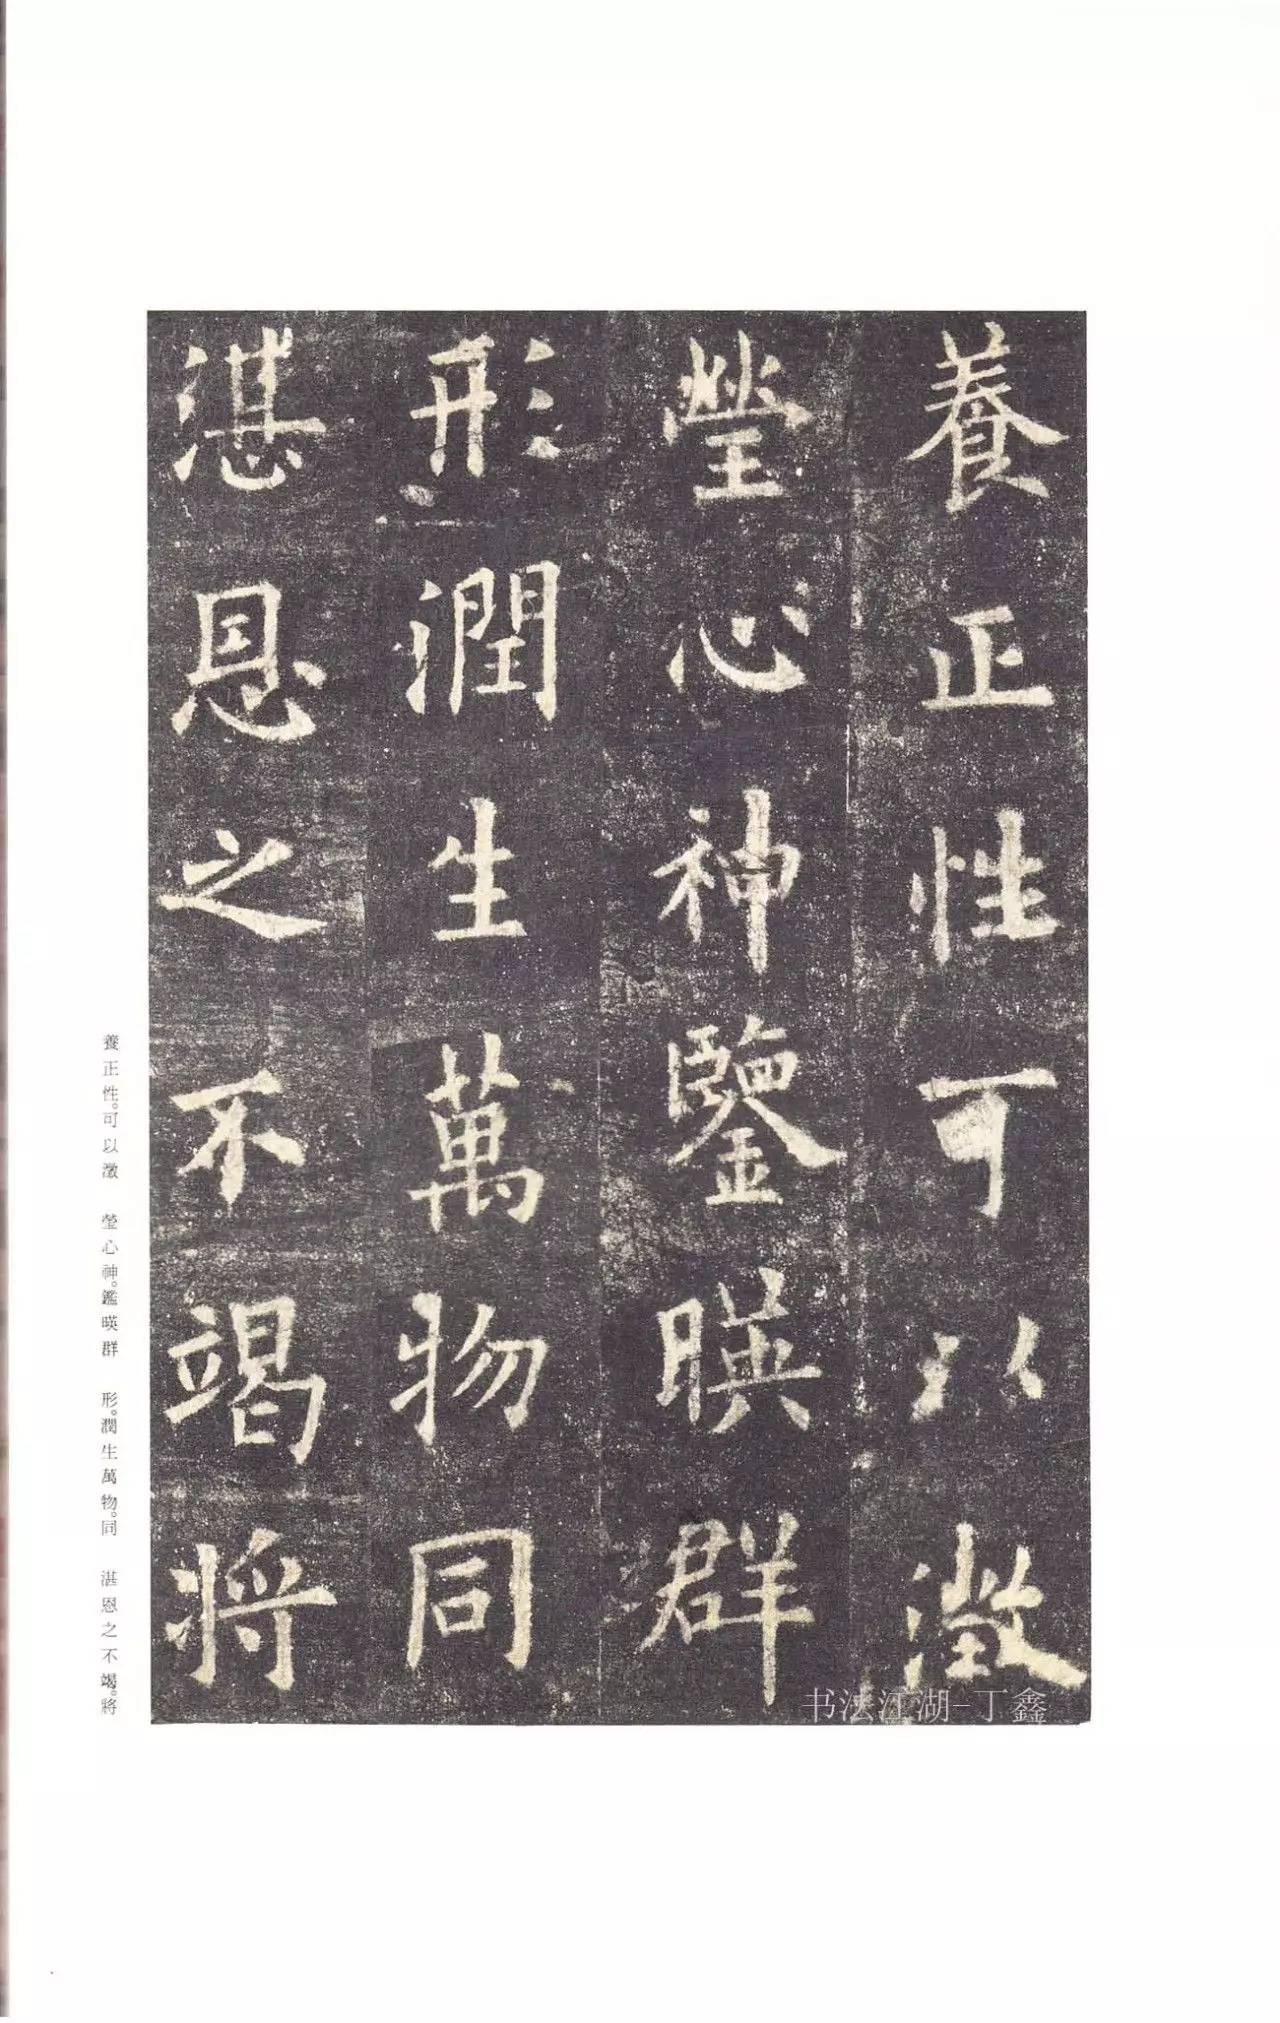 養正性可以澂
瑩心神鑒暎群
形潤生萬物同
湛恩之不竭將
養正性。可以澂　瑩心神。鑑暎群　形。潤生萬物。同　湛恩之不竭。將
书法江湖-丁鑫